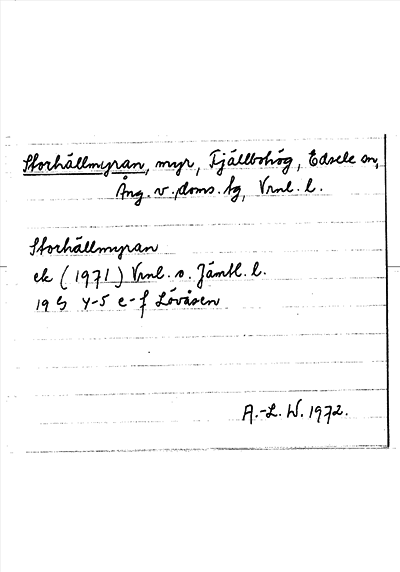 Storhällmyran, myr, Fjällbohög, Edsele sn,
Ång. v. doms. tg, Vrnl. l.
Storhällmyran
ek (1971) Vrnl. o. Jämtl. l.
19 G 4-5 e-f Lövåsen
A.-L. W. 1972.